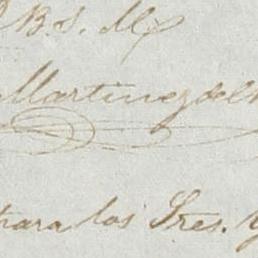 B. S. M.
Martinez del
para los Sres.